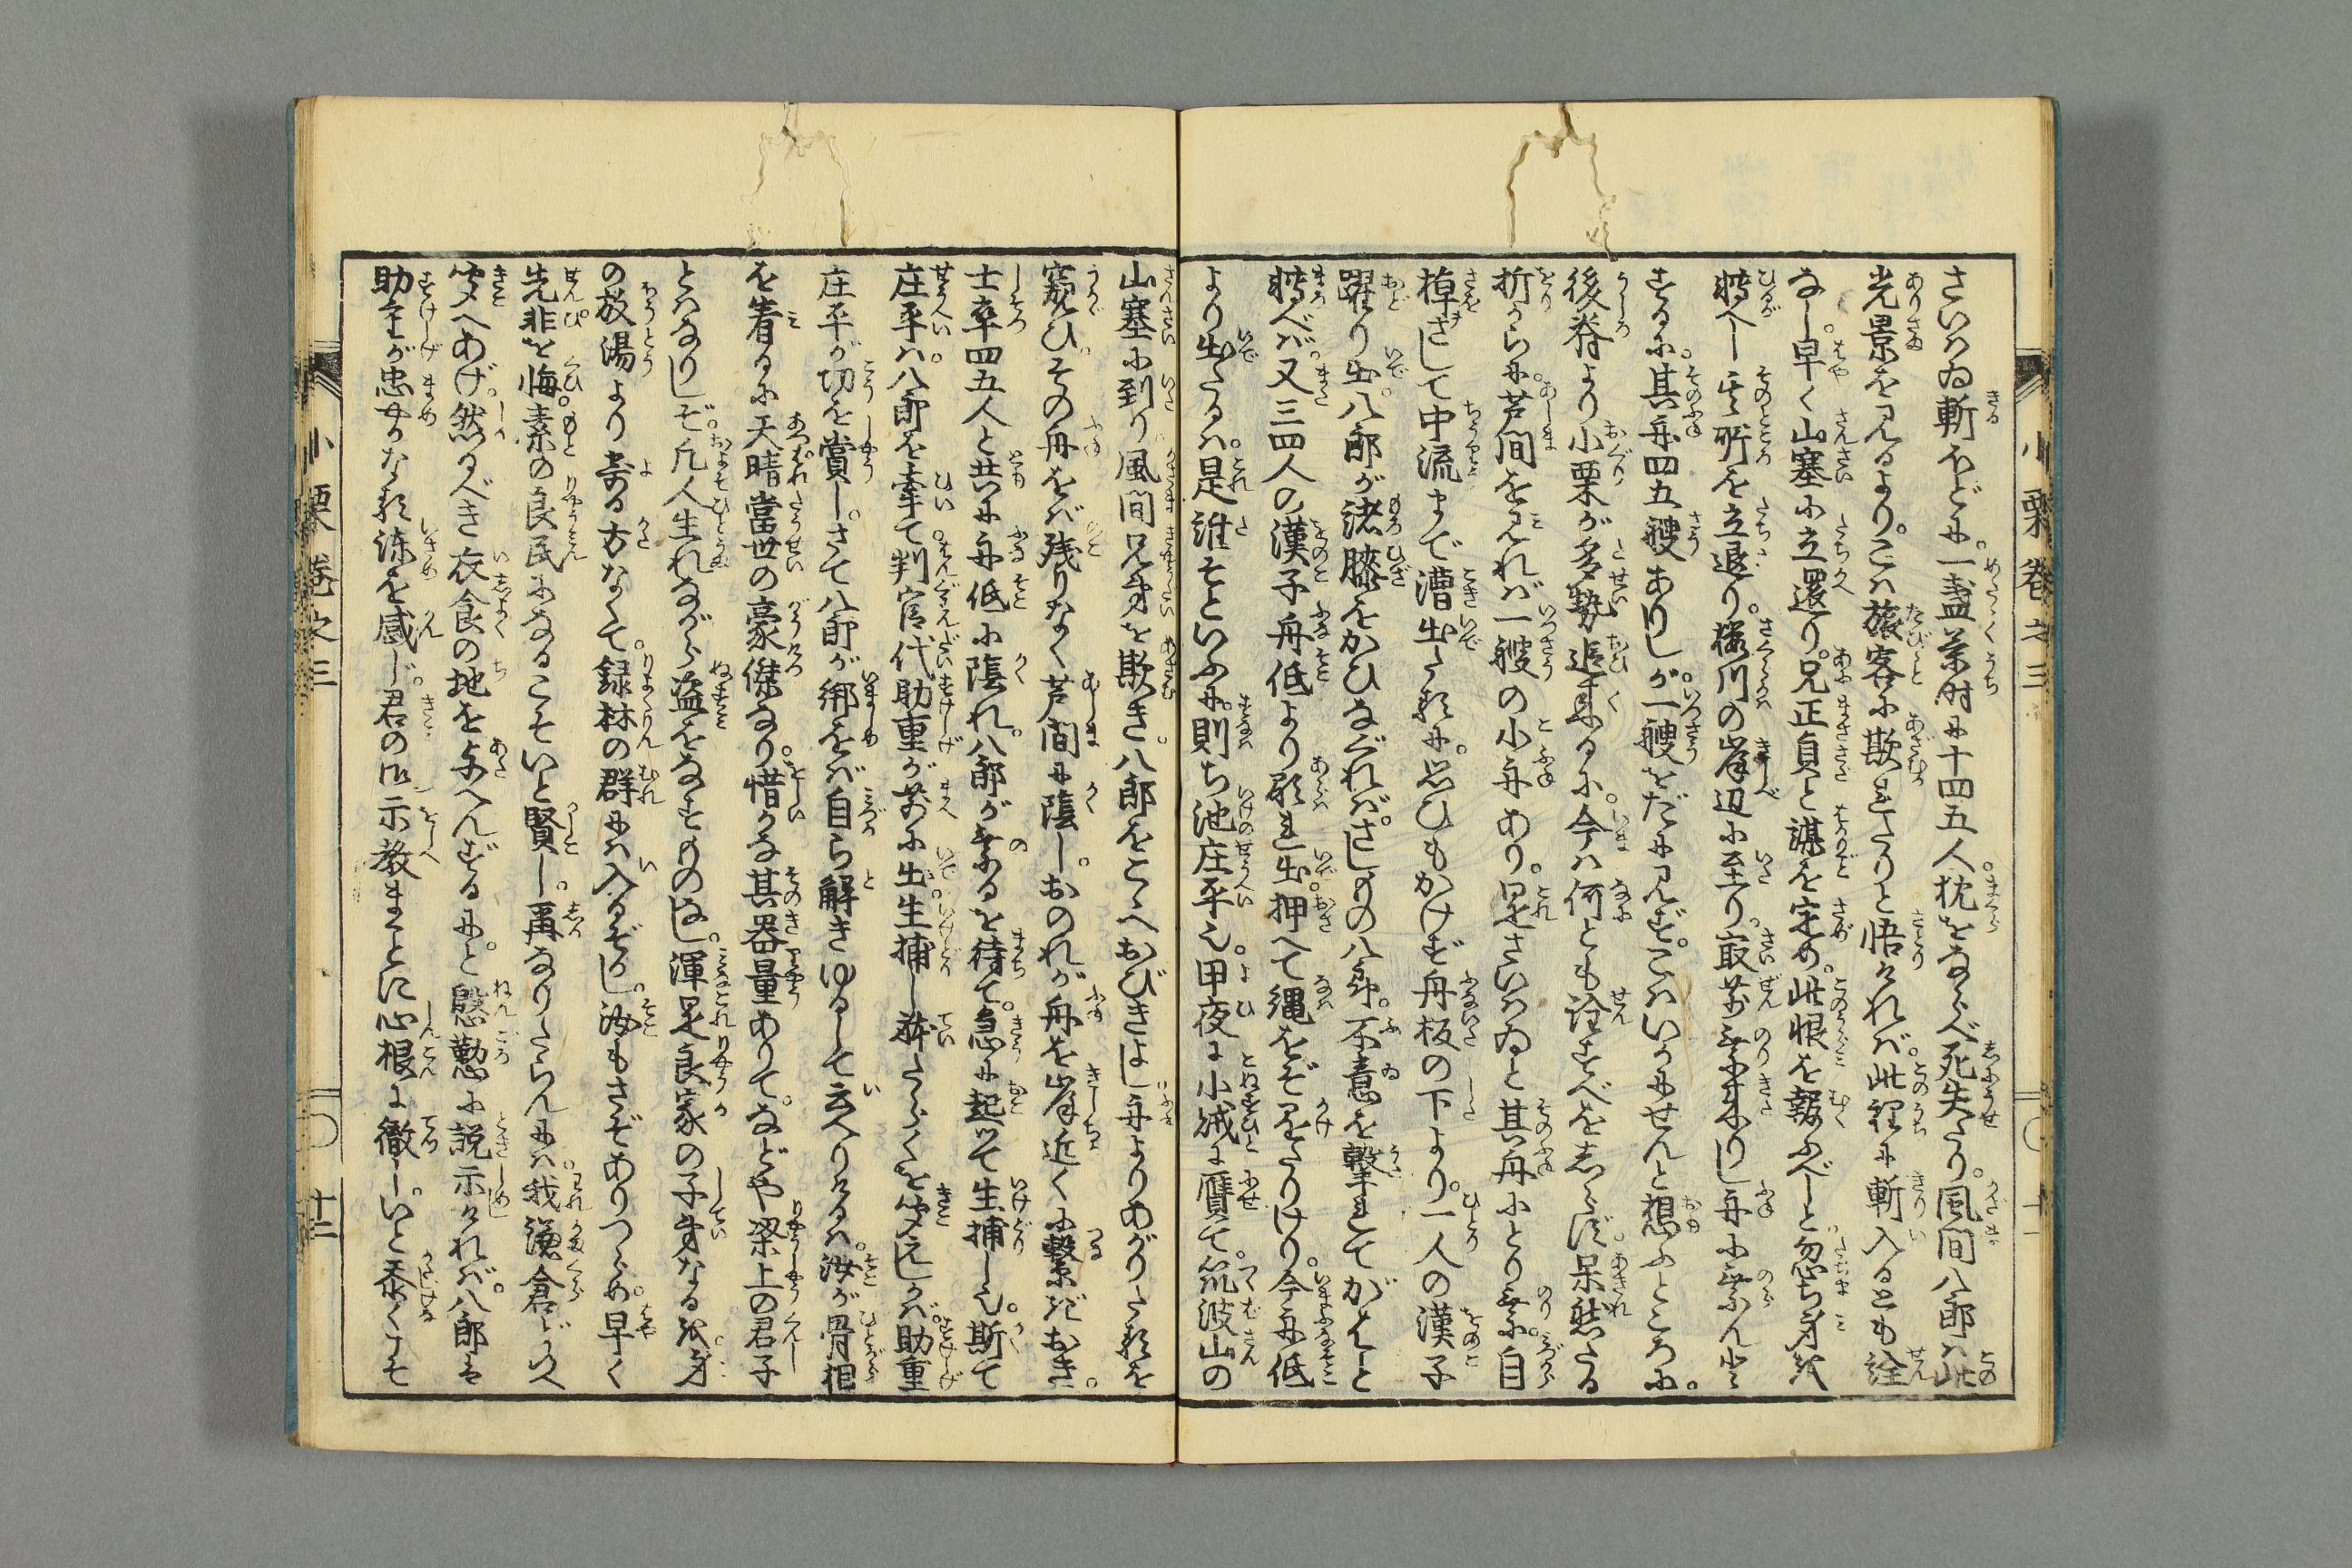 さいはゐ斬ほどに。一盞茶時に十四五人。枕をならべ死失たり。風間八郎は此
光景を見るより。こは旅客に欺れたりと悟りければ。此裡に斬入るとも詮
なし。早く山塞に立還り。兄正貞と謀を定め。此恨を報ふべしと。忽ち身を
轉へし其所を立退り。桜川の岸辺に至り。最前乗来りし舟に乗んと
するに。其舟四五艘ありしが。一艘をだに見ず。こはいかにせんと想ふところに。
後脊より小栗が多勢追来るに。今は何とも詮すべをしらず。呆然たる
折から。芦間を見れば一艘の小舟あり。是さいはゐと其舟にとり乗。自
棹さして中流まで漕出たるに。思ひもかけず舟板の下より。一人の漢子
躍り出。八郎が諸膝をかひなぐれば。さしもの八郎。不意を撃れてがはと
轉べば。又三四人の漢子舟低より顕れ出。押へて縄をぞ是かけたりけり。今舟低
より出たるは。是誰そといふに。則ち池庄平也。甲夜に小賊に贋て。筑波山の
山塞に到り。風間兄弟を欺き。八郎をこゝへおびきよし舟よりあがりたるを
窺ひ。その舟をば残りなく芦間に隠し。おのれが舟を岸近くに繋ぎおき。
士卒四五人と共に舟低に隠れ。八郎が乗るを待て。急に起つて生捕し也。斯て
庄平は。八郎を牽て。判官代助重が前に出。生捕し為体を聞えしかば。助重
庄平が功を賞し。さて八郎が縛をば自ら解きゆるして云へりけるは。汝が骨相
を看るに天晴當世の豪傑なり。惜かな其器量ありて。などや梁上の君子
とはなりしぞ。凡人生れながら盗をなすものなし。渾是良家の子弟なるが。身
の放湯より寄る方なくて。録林の群には入るぞかし。汝もさぞありつらめ。早く
先非を悔。素の良民になるこそいと賢し。再なりたらんには。我鎌倉どのへ
聞へあげ。然るべき衣食の地を与へんずるに。と慇懃に説示ければ。八郎は
助重が忠やかなる諫を感じ。君の御示教まことに心根に徹し。いと忝くこそ
小栗巻之三
十一
小栗巻之三
十二